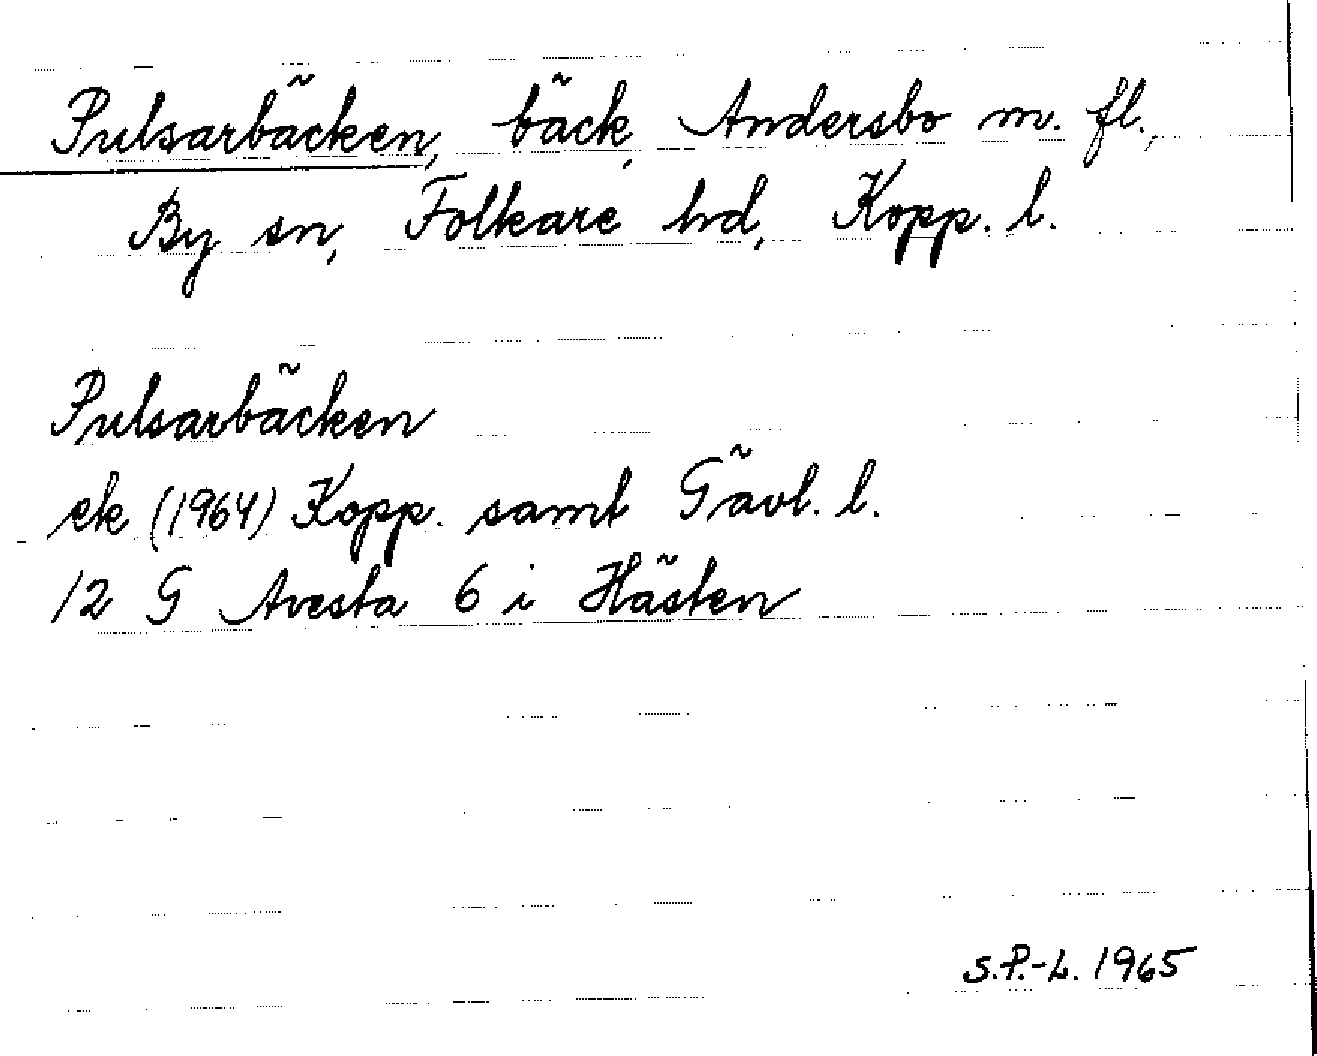 Pulsarbäcken, bäck, Andersbo m. fl.,
By sn, Folkare hd, Kopp. l.
Pulsarbäcken
ek (1964) Kopp. samt Gävl. l.
12 G Avesta 6 i Hästen
S.P.-L. 1965